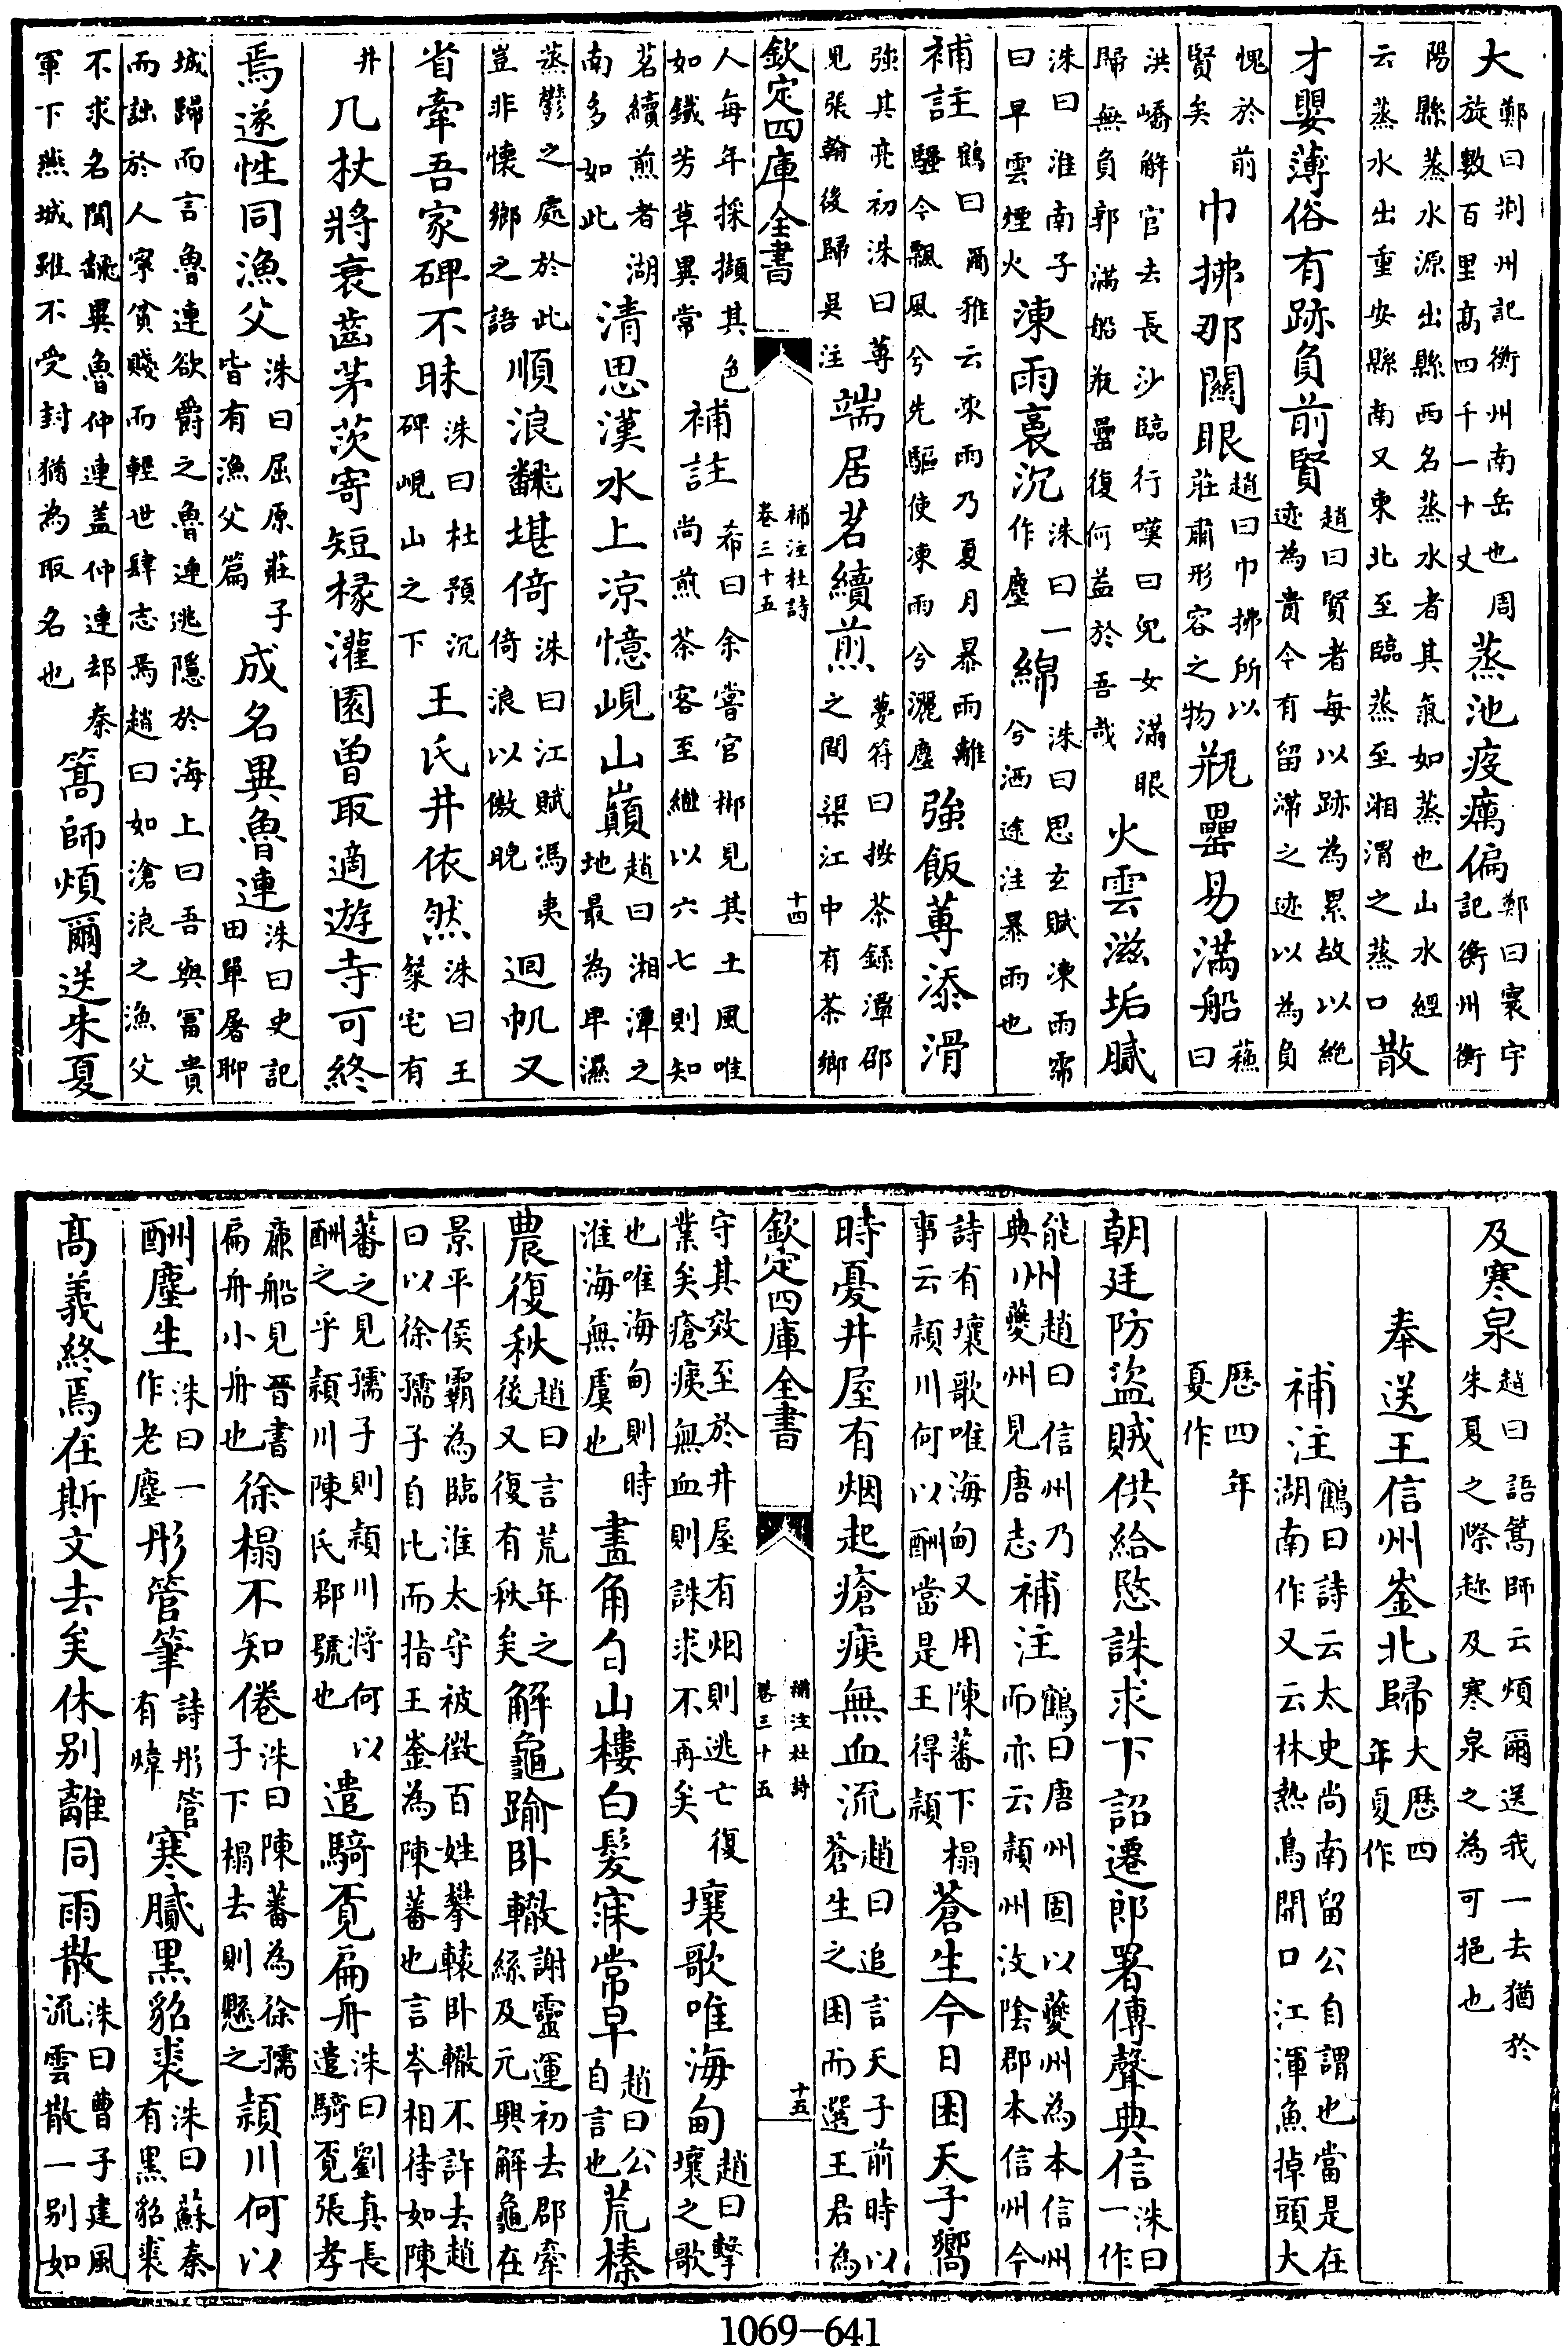 大鄭曰荆州記衡州南岳也周旋數百里髙四千一十丈蒸池疫癘偏鄭曰寰宇記衡州衡
陽縣蒸水源出縣西名蒸水者其氣如蒸也山水經云蒸水出重安縣南又東北至臨蒸至湘謂之蒸口散
才嬰薄俗有跡負前賢趙曰賢者每以跡為累故以絶迹為貴今有留滯之迹以為負
愧於前賢矣巾拂那闗眼趙曰巾拂所以莊肅形容之物瓶罍易滿船蘓曰
洪嶠解官去長沙臨行嘆曰兒女滿眼歸無負郭滿船瓶罍復何益於吾哉火雲滋垢膩
洙曰淮南子曰旱雲煙火凍雨裛沉洙曰一作塵綿洙曰思玄賦凍雨霈兮洒途注暴雨也
補註鶴曰爾雅云凍雨乃夏月暴雨離騷令飄風兮先驅使凍雨兮灑塵強飯蓴添滑
強其亮初洙曰蓴見張翰後歸吳注端居茗續煎夢符曰按茶録潭邵之間渠江中有茶鄉
欽定四庫全書 補注杜詩 卷三十五 十四
人每年採擷其色如鐵芳草異常補註希曰余嘗官郴見其土風唯尚煎茶客至繼以六七則知
茗續煎者湖南多如此清思漢水上凉憶峴山巔趙曰湘潭之地最為卑濕
蒸鬱之處於此豈非懐鄉之語順浪飜堪倚洙曰江賦馮夷倚浪以傲睨迴帆又
省牽吾家碑不昧洙曰杜預沉碑峴山之下王氏井依然洙曰王粲宅有
井几杖將衰齒茅茨寄短椽灌園曽取適遊寺可終
焉遂性同漁父洙曰屈原莊子皆有漁父篇成名異魯連洙曰史記田單屠聊
城歸而言魯連欲爵之魯連逃隱於海上曰吾與冨貴而詘於人寧貧賤而輕世肆志焉趙曰如滄浪之漁父
不求名聞飜異魯仲連盖仲連却秦軍下燕城雖不受封猶為取名也篙師煩爾送朱夏
及寒泉趙曰語篙師云煩爾送我一去猶於朱夏之際趂及寒泉之為可挹也
奉送王信州崟北歸大厯四年夏作
補注鶴曰詩云太史尚南留公自謂也當是在湖南作又云林熱鳥開口江渾魚掉頭大
厯四年夏作
朝廷防盜賊供給愍誅求下詔遷郎署傳聲典信洙曰一作
能典州趙曰信州乃夔州見唐志補注鶴曰唐州固以夔州為本信州而亦云潁州汝陰郡本信州今
詩有壤歌唯海甸又用陳蕃下榻事云潁川何以酬當是王得潁蒼生今日困天子嚮
時憂井屋有烟起瘡痍無血流趙曰追言天子前時以蒼生之困而選王君為
欽定四庫全書 補注杜詩 卷三十五 十五
守其效至於井屋有烟則逃亡復業矣瘡痍無血則誅求不再矣壤歌唯海甸趙曰擊壤之歌
也唯海甸則時淮海無虞也畫角自山樓白髪寐常早趙曰公自言也荒榛
農復秋趙曰言荒年之後又復有秋矣解龜踰卧轍謝靈運初去郡牽絲及元興解龜在
景平侯霸為臨淮太守被徵百姓攀轅卧轍不許去趙曰以徐孺子自比而指王崟為陳蕃也言岑相待如陳
蕃之見孺子則潁川將何以酬之乎潁川陳氏郡號也遣騎覓扁舟洙曰劉真長遣騎覓張孝
亷船見晋書扁舟小舟也徐榻不知倦洙曰陳蕃為徐孺子下榻去則懸之潁川何以
酬塵生洙曰一作老塵彤管筆詩彤管有煒寒膩黑貂裘洙曰蘇秦有黑貂裘
髙義終焉在斯文去矣休别離同雨散洙曰曹子建風流雲散一别如
1069-641